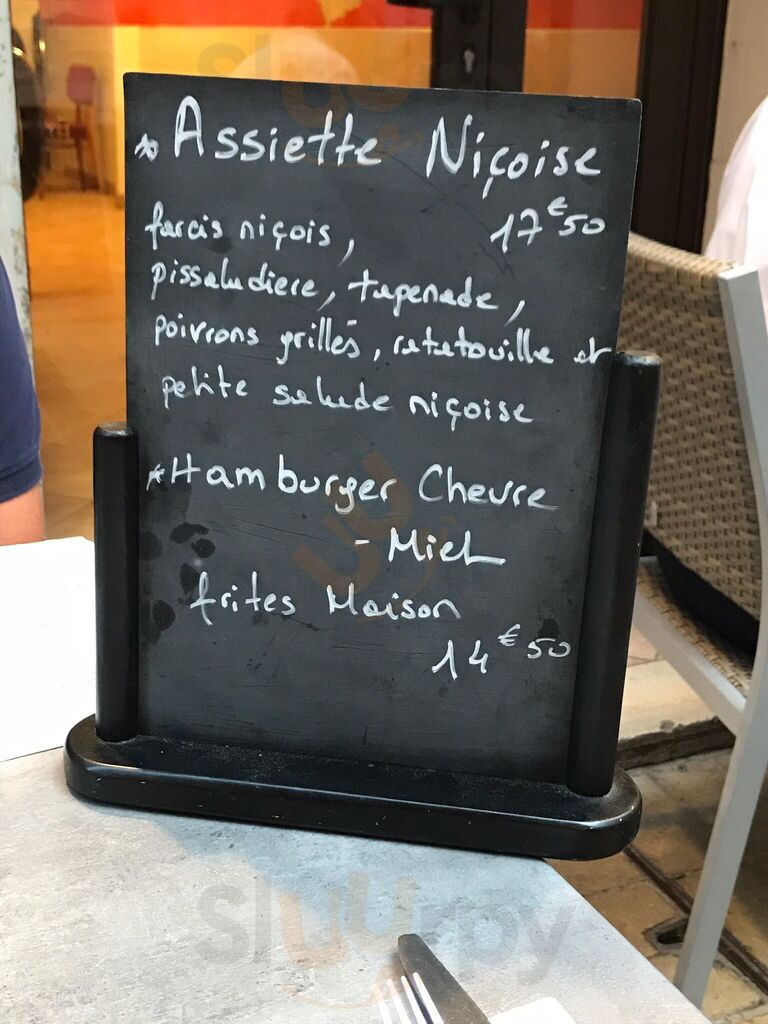 * Assiette Niçoise
17€50
farcis niçois,
pissaladiere, tapenade,
poivrons grillés, ratatouille et
petite salade niçoise
* Hamburger Chevre
- Miel
frites Maison
14€50
sluurpy